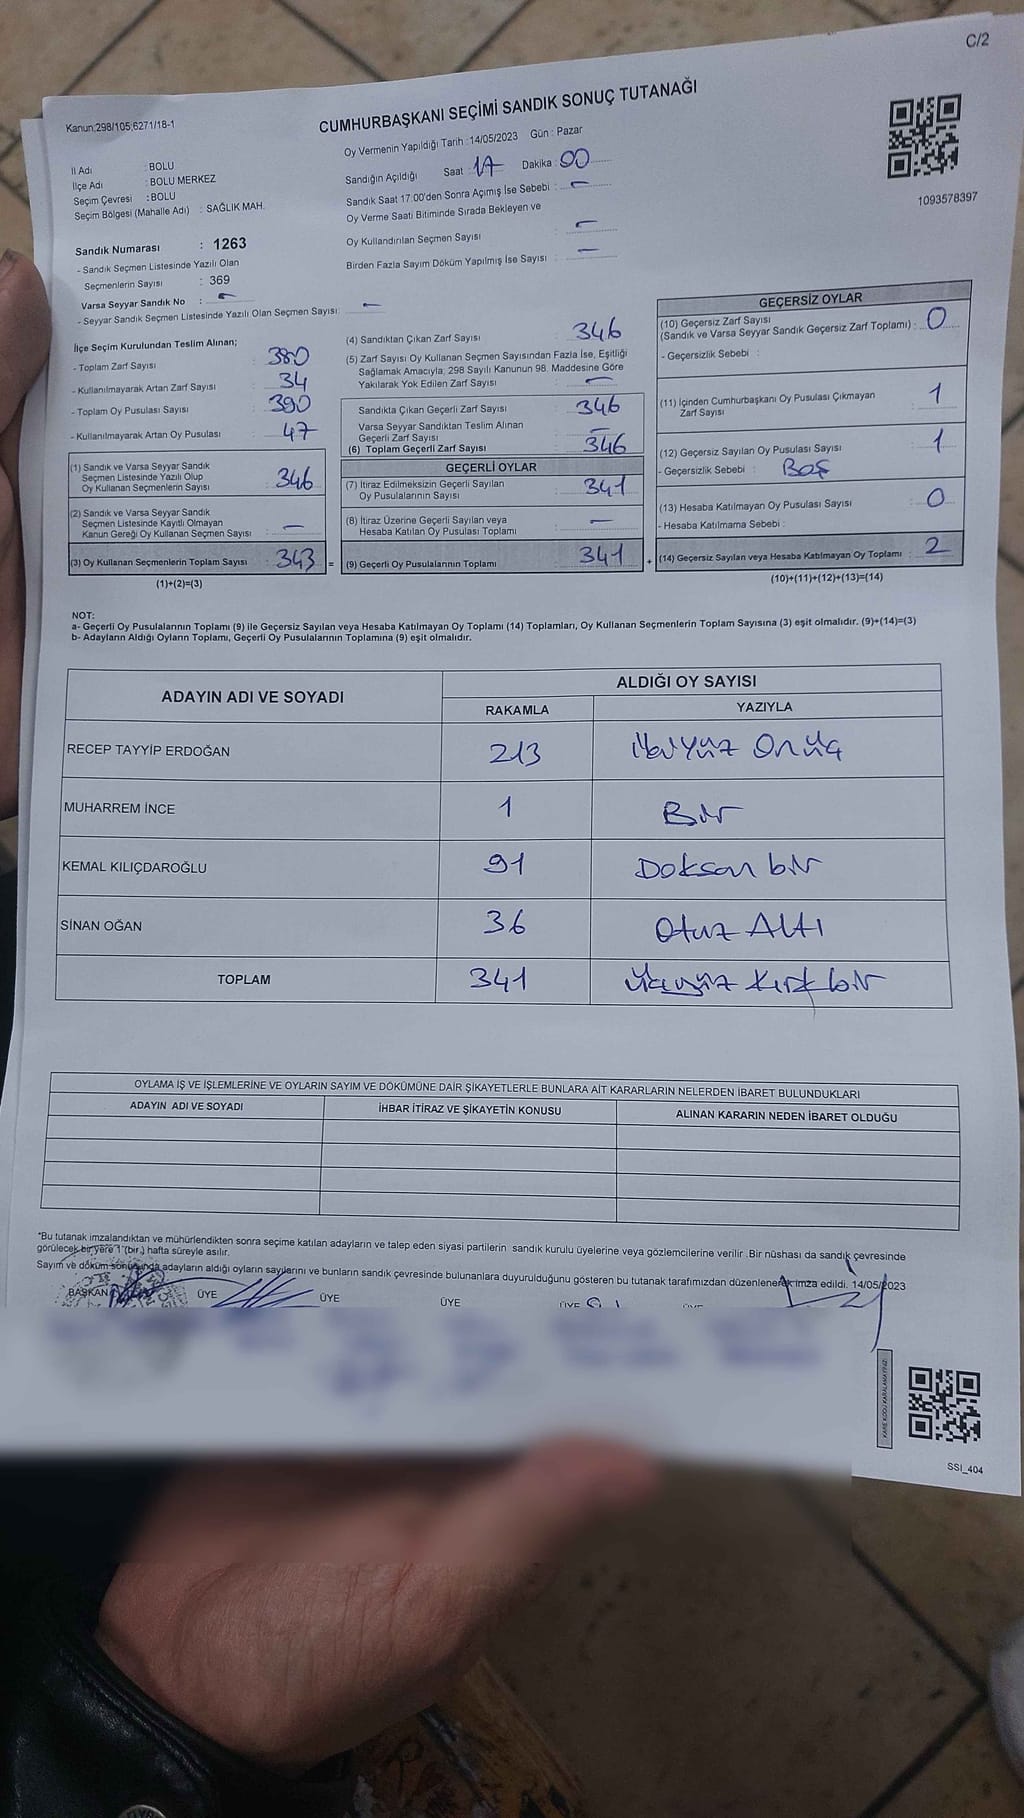 C/2
Kanun;298/105;6271/18-1
CUMHURBAŞKANI SEÇİMİ SANDIK SONUÇ TUTANAĞI
Oy Vermenin Yapıldığı Tarih :14/05/2023 Gün : Pazar
İl Adı : BOLU
İlçe Adı : BOLU MERKEZ
Seçim Çevresi : BOLU
Seçim Bölgesi (Mahalle Adı) : SAĞLIK MAH.
Sandığın Açıldığı Saat : 17 Dakika : 00
Sandık Saat 17:00'den Sonra Açımış İse Sebebi : -
Oy Verme Saati Bitiminde Sırada Bekleyen ve
Oy Kullandırılan Seçmen Sayısı : -
Birden Fazla Sayım Döküm Yapılmış İse Sayısı : -
1093578397
Sandık Numarası : 1263
- Sandık Seçmen Listesinde Yazılı Olan
Seçmenlerin Sayısı : 369
Varsa Seyyar Sandık No : -
- Seyyar Sandık Seçmen Listesinde Yazılı Olan Seçmen Sayısı: -
İlçe Seçim Kurulundan Teslim Alınan;
- Toplam Zarf Sayısı : 380
- Kullanılmayarak Artan Zarf Sayısı : 34
- Toplam Oy Pusulası Sayısı : 390
- Kullanılmayarak Artan Oy Pusulası : 47
(1) Sandık ve Varsa Seyyar Sandık
Seçmen Listesinde Yazılı Olup
Oy Kullanan Seçmenlerin Sayısı : 346
(2) Sandık ve Varsa Seyyar Sandık
Seçmen Listesinde Kayıtlı Olmayan
Kanun Gereği Oy Kullanan Seçmen Sayısı : -
(3) Oy Kullanan Seçmenlerin Toplam Sayısı : 343 =
(1)+(2)=(3)
(4) Sandıktan Çıkan Zarf Sayısı : 346
(5) Zarf Sayısı Oy Kullanan Seçmen Sayısından Fazla İse, Eşitliği
Sağlamak Amacıyla, 298 Sayılı Kanunun 98. Maddesine Göre
Yakılarak Yok Edilen Zarf Sayısı : -
Sandıkta Çıkan Geçerli Zarf Sayısı : 346
Varsa Seyyar Sandıktan Teslim Alınan
Geçerli Zarf Sayısı : -
(6) Toplam Geçerli Zarf Sayısı : 346
GEÇERLİ OYLAR
(7) İtiraz Edilmeksizin Geçerli Sayılan
Oy Pusulalarının Sayısı : 341
(8) İtiraz Üzerine Geçerli Sayılan veya
Hesaba Katılan Oy Pusulası Toplamı : -
(9) Geçerli Oy Pusulalarının Toplamı : 341 +
GEÇERSİZ OYLAR
(10) Geçersiz Zarf Sayısı
(Sandık ve Varsa Seyyar Sandık Geçersiz Zarf Toplamı) : 0
- Geçersizlik Sebebi :
(11) İçinden Cumhurbaşkanı Oy Pusulası Çıkmayan
Zarf Sayısı : 1
(12) Geçersiz Sayılan Oy Pusulası Sayısı : 1
- Geçersizlik Sebebi : BOŞ
(13) Hesaba Katılmayan Oy Pusulası Sayısı : 0
- Hesaba Katılmama Sebebi :
(14) Geçersiz Sayılan veya Hesaba Katılmayan Oy Toplamı : 2
(10)+(11)+(12)+(13)=(14)
NOT:
a- Geçerli Oy Pusulalarının Toplamı (9) ile Geçersiz Sayılan veya Hesaba Katılmayan Oy Toplamı (14) Toplamları, Oy Kullanan Seçmenlerin Toplam Sayısına (3) eşit olmalıdır. (9)+(14)=(3)
b- Adayların Aldığı Oyların Toplamı, Geçerli Oy Pusulalarının Toplamına (9) eşit olmalıdır.
ADAYIN ADI VE SOYADI ALDIĞI OY SAYISI
RAKAMLA YAZIYLA
RECEP TAYYİP ERDOĞAN 213 İkiyüz Onüç
MUHARREM İNCE 1 Bir
KEMAL KILIÇDAROĞLU 91 Doksan bir
SİNAN OĞAN 36 Otuz Altı
TOPLAM 341 Üçyüz kırk bir
OYLAMA İŞ VE İŞLEMLERİNE VE OYLARIN SAYIM VE DÖKÜMÜNE DAİR ŞİKAYETLERLE BUNLARA AİT KARARLARIN NELERDEN İBARET BULUNDUKLARI
ADAYIN ADI VE SOYADI İHBAR İTİRAZ VE ŞİKAYETİN KONUSU ALINAN KARARIN NEDEN İBARET OLDUĞU
*Bu tutanak imzalandıktan ve mühürlendikten sonra seçime katılan adayların ve talep eden siyasi partilerin sandık kurulu üyelerine veya gözlemcilerine verilir .Bir nüshası da sandık çevresinde
görülecek bir yere 1 (bir ) hafta süreyle asılır.
Sayım ve döküm sonucunda adayların aldığı oyların sayılarını ve bunların sandık çevresinde bulunanlara duyurulduğunu gösteren bu tutanak tarafımızdan düzenlenerek imza edildi. 14/05/2023
BAŞKAN ÜYE ÜYE ÜYE ÜYE
SSİ_404